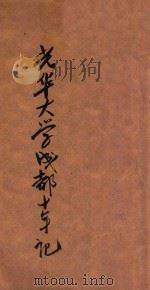 光华大学成都十年记
研狗
mtoou.info